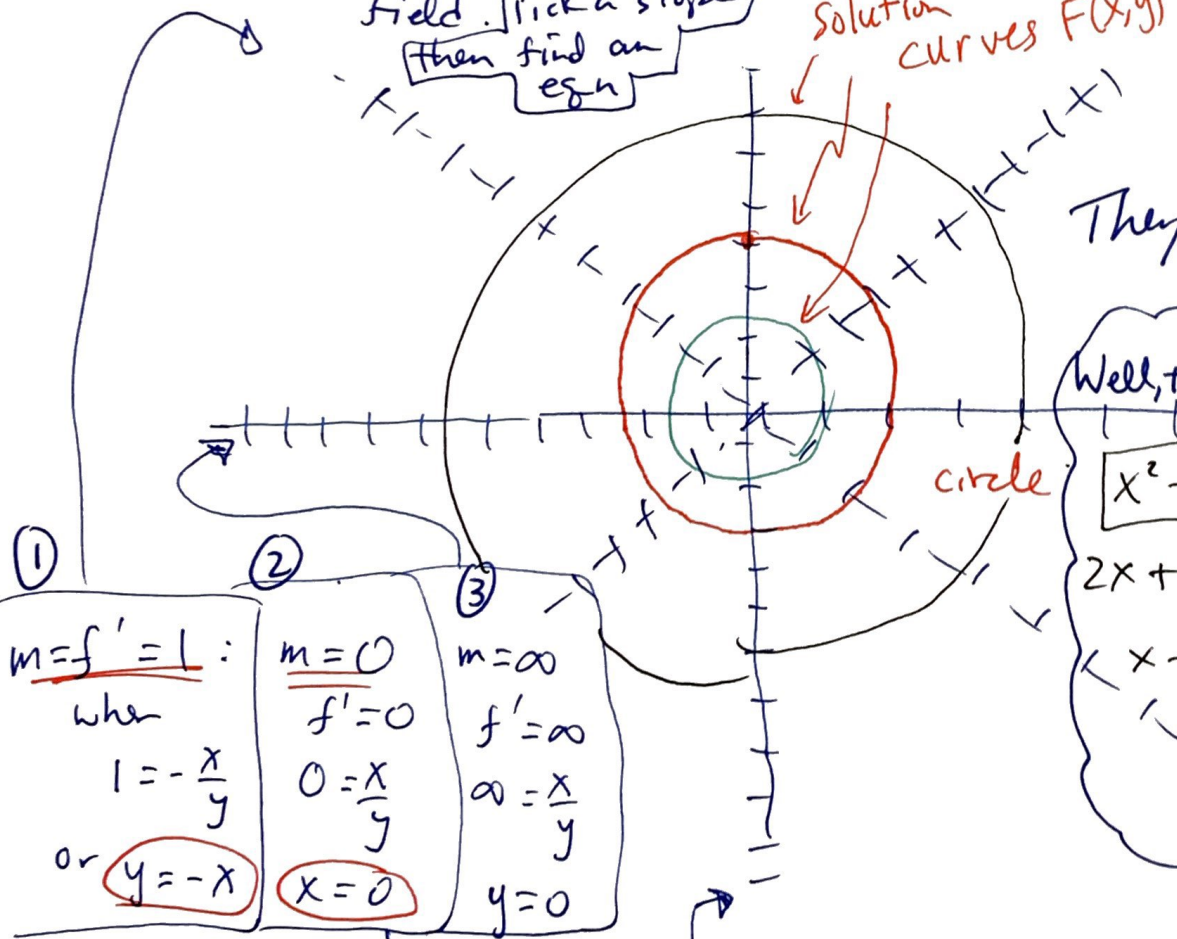 field. Pick a slope
then find an
eqn
Solution
curves F(x,y)
They
Well,
circle
x²
2x +
x -
①
m=f'=1:
when
1=-x/y
or y=-x
②
m=0
f'=0
0=x/y
x=0
③
m=∞
f'=∞
∞=x/y
y=0